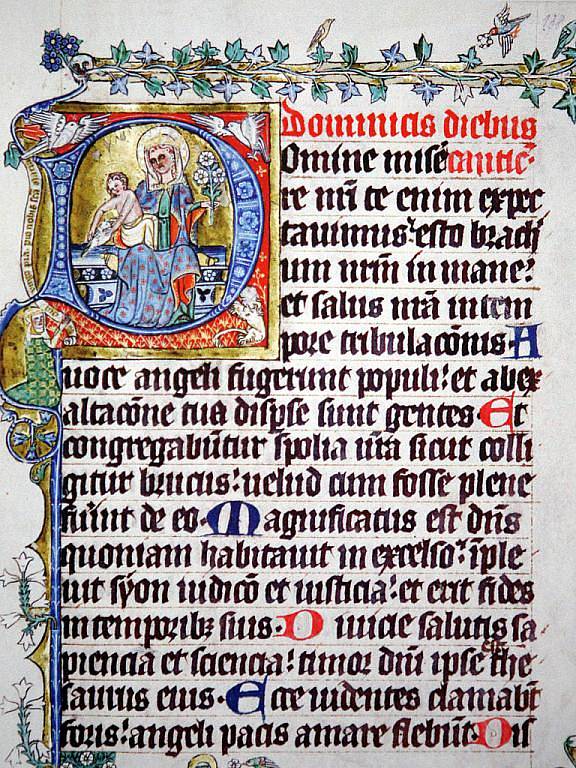 Dominicis diebus
Omine mise cantic
re nri te enim expec
tauimus: esto brachi
um nrm in mane:
et salus nra in tem
pore tribulacōnis. A
uoce angeli fugerunt populi: et ab ex
altacōne tua disp̄se sunt gentes. Et
congregabūtur spolia ura sicut colli
gitur brucus: uelud cum fosse plene
fūint de eo. Magnificatus est dn̄s
quoniam habitauit in excelso: īple
uit syon iudicō et iusticia: et erit fides
in temporibꝫ suis. Diuicie salutis sa
piencia et sciencia: timor dn̄i ipse est the
saurus eius. Ecce uidentes clamabūt
foris: angeli pacis amare flebūt. Dis